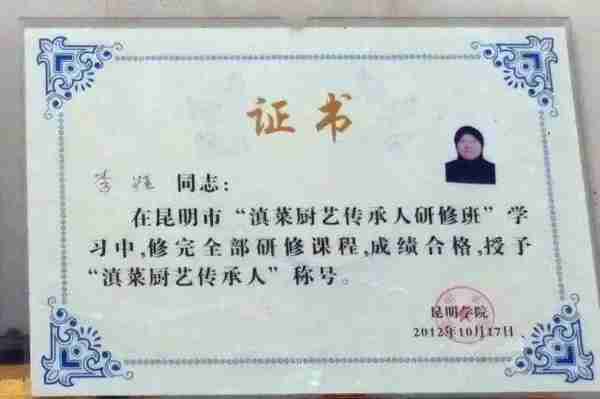 证书
李 同志:
在昆明市“滇菜厨艺传承人研修班”学
习中,修完全部研修课程,成绩合格,授予
“滇菜厨艺传承人”称号。
昆明学院
2012年10月17日